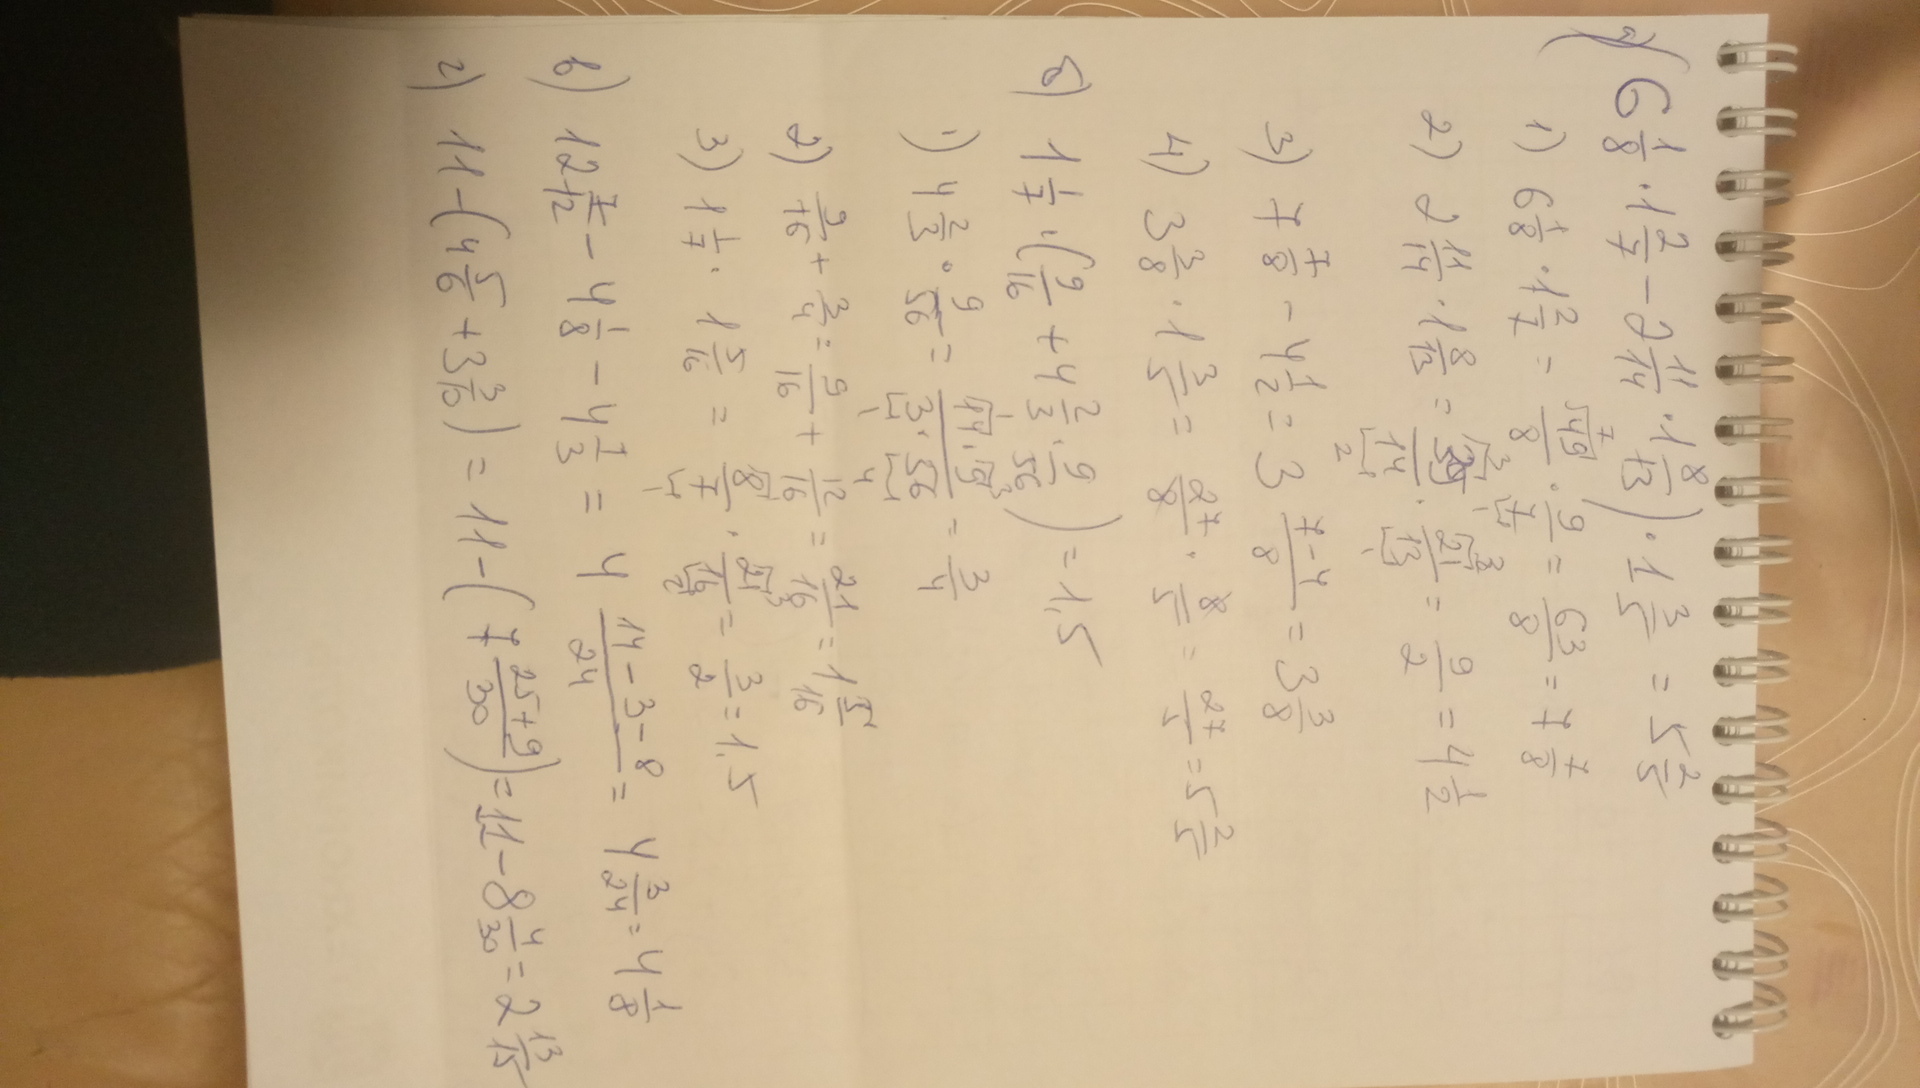 а) (6 1/8 · 1 2/7 - 2 11/14 · 1 8/13) · 1 3/5 = 5 2/5
1) 6 1/8 · 1 2/7 = 49/8 · 9/7 = 63/8 = 7 7/8
2) 2 11/14 · 1 8/13 = 39/14 · 21/13 = 9/2 = 4 1/2
3) 7 7/8 - 4 1/2 = 3 7-4/8 = 3 3/8
4) 3 3/8 · 1 3/5 = 27/8 · 8/5 = 27/5 = 5 2/5
б) 1 1/7 · (9/16 + 4 2/3 · 9/56) = 1,5
1) 4 2/3 · 9/56 = 14·9/3·56 = 3/4
2) 9/16 + 3/4 = 9/16 + 12/16 = 21/16 = 1 5/16
3) 1 1/7 · 1 5/16 = 8/7 · 21/16 = 3/2 = 1,5
в) 12 7/12 - 4 1/8 - 4 1/3 = 4 14-3-8/24 = 4 3/24 = 4 1/8
г) 11 - (4 5/6 + 3 3/10) = 11 - (7 25+9/30) = 11 - 8 4/30 = 2 13/15